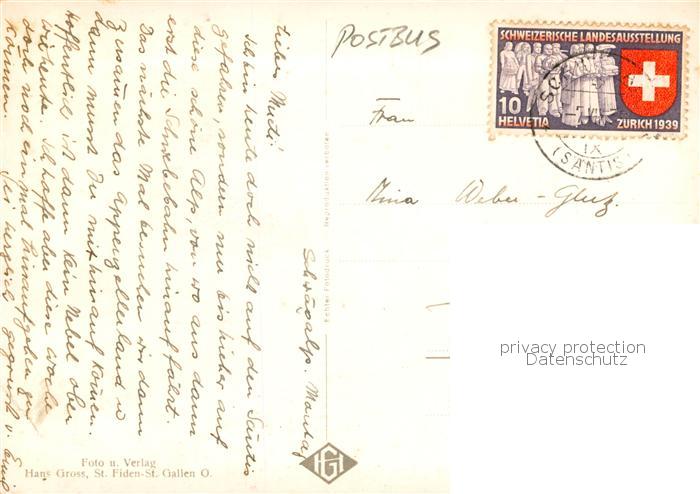 POSTBUS
SCHWEIZERISCHE LANDESAUSSTELLUNG
10
HELVETIA
ZURICH 1939
IX
(SÄNTIS)
Frau
Weber-
privacy protection
Datenschutz
Schwägalp. Montag
Liebes
Ich bin heute doch nicht auf den Säntis
gefahren, sondern nur bis hieher auf
diese schöne Alp, von wo aus dann
erst die Schwebebahn hinauf führt.
Das nächste Mal besuchen wir dann
zusammen das Appenzellerland u
dann musst Du mit hinauf kommen.
Hoffentlich ist dann kein Nebel oben
wie heute. Ich hoffe aber diese Woche
doch noch ein mal hinaufgehen zu
können.
Sei herzlich gegrüsst v.
Echter Fotodruck
Reproduktion verboten
Foto u. Verlag
Hans Gross, St. Fiden-St. Gallen O.
HG